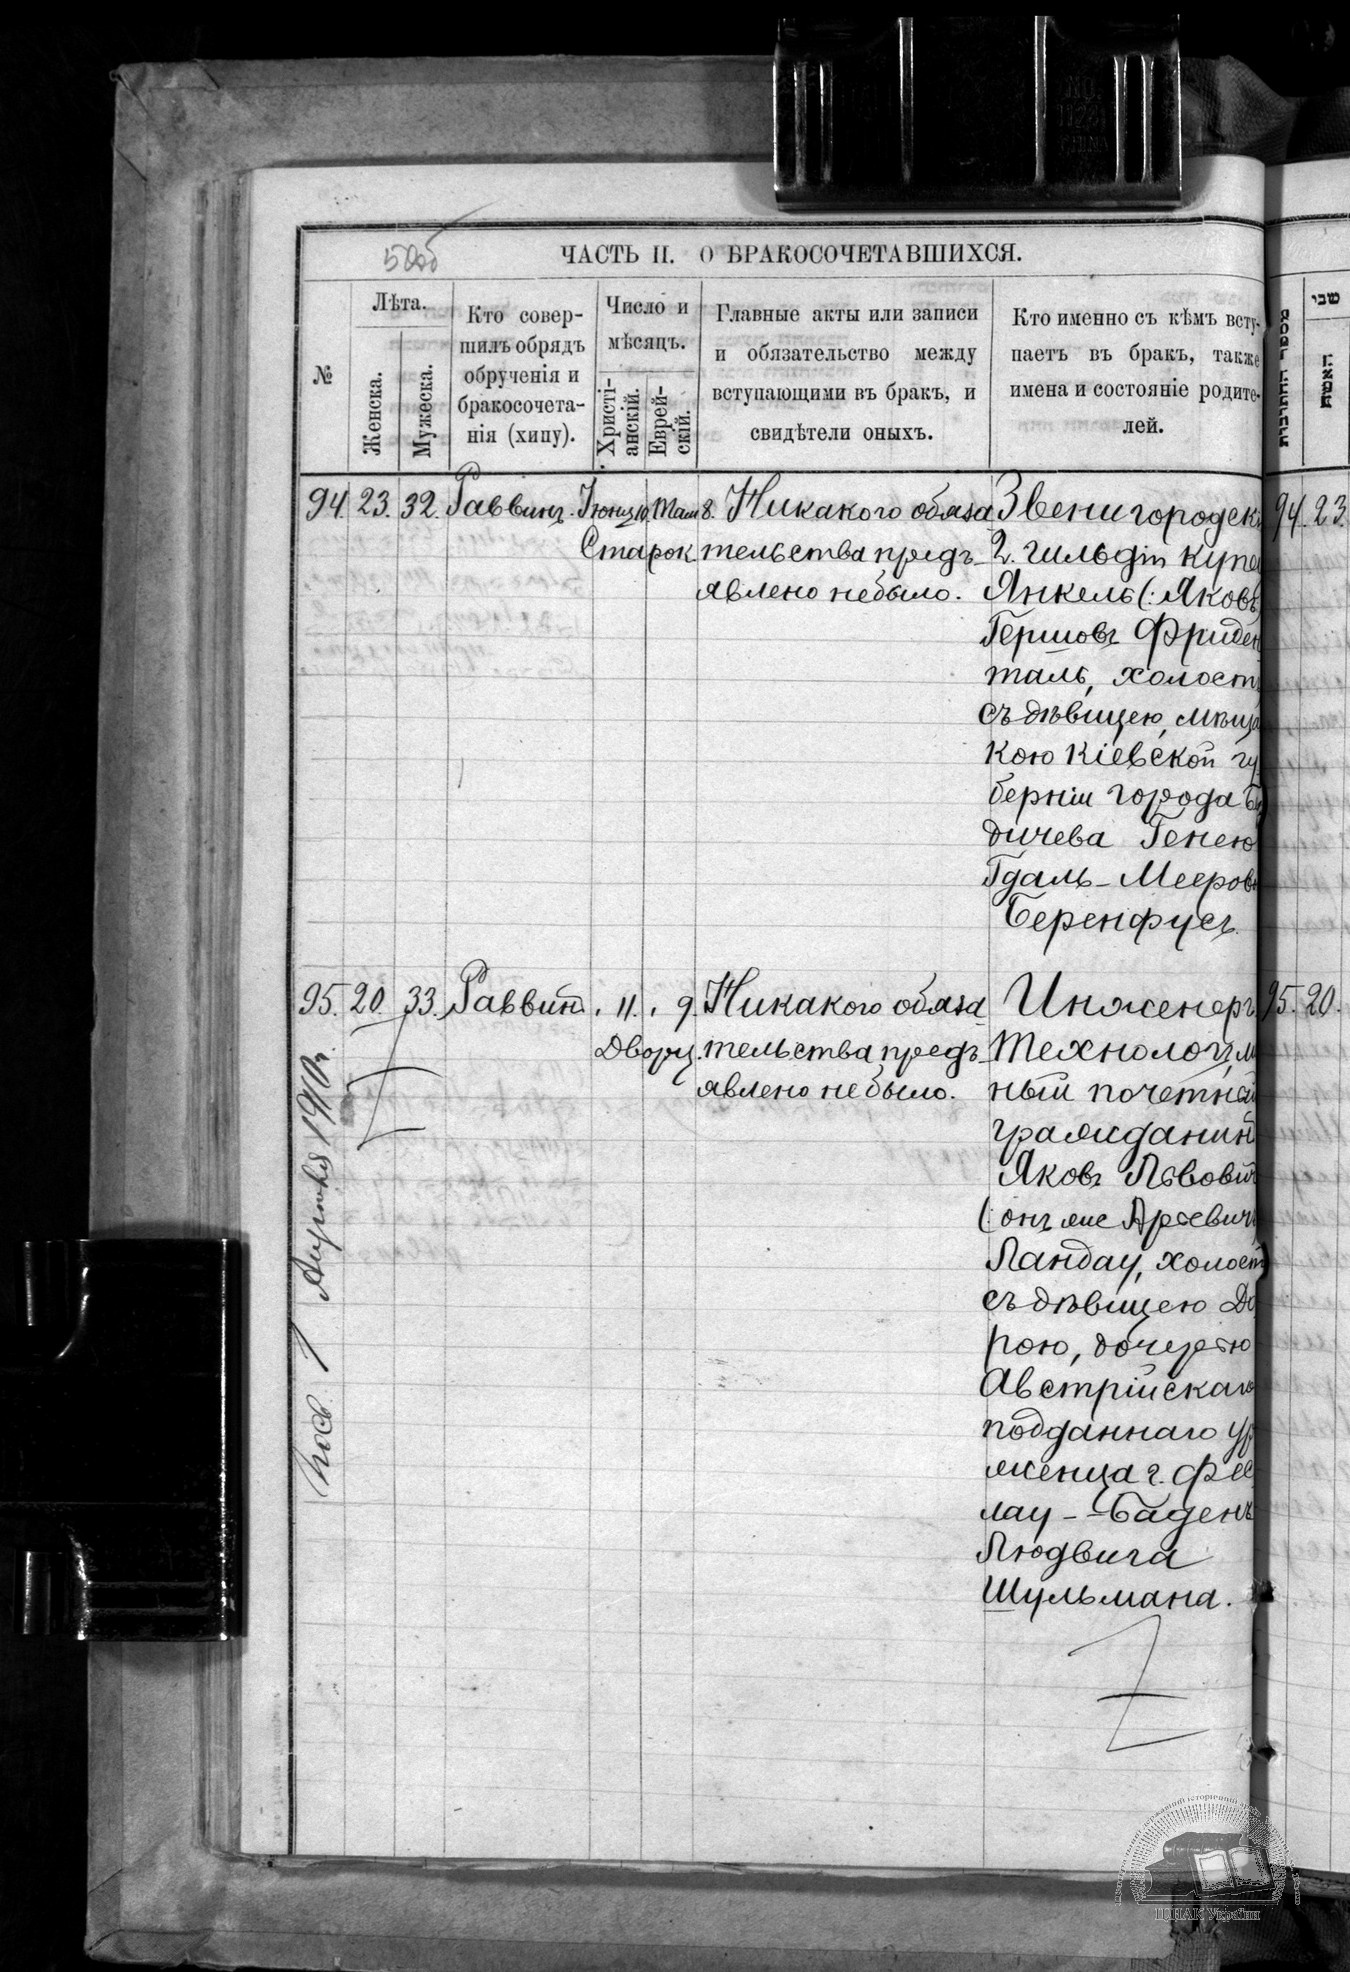 50об
ЧАСТЬ II. О БРАКОСОЧЕТАВШИХСЯ.
№
Лѣта.
Женска.
Мужеска.
Кто совер-
шилъ обрядъ
обрученія и
бракосочета-
нія (хипу).
Число и
мѣсяцъ.
Христі-
анскій.
Еврей-
скій.
Главные акты или записи
и обязательство между
вступающими въ бракъ, и
свидѣтели оныхъ.
Кто именно съ кѣмъ всту-
паетъ въ бракъ, также
имена и состояніе родите-
лей.
94. 23. 32. Раввинъ. Іюня 10. Там 8. Никакого обяза
Старок. тельства предъ-
явлено небыло.
Звенигородск
2. гильдіи купе
Янкель (: Яковъ
Гершовъ Фриден
таль, холост
съ дѣвицею, мѣща
кою Кіевской гу
берніи города Бе
дичева Генею
Гдаль-Мееров
Беренфусъ.
95. 20. 33. Раввинъ . 11. . 9. Никакого обяза
Дворц. тельства предъ-
явлено небыло.
Инженеръ
Технологъ, ли
ный почетный
гражданинъ
Яковъ Львовичъ
(: онъ же Арьевичъ
Ландау, холост
съ дѣвицею До
рою, дочерью
Австрійскаго
подданнаго ур
женца г. Фес
лау - Баденъ
Людвига
Шульмана.
1910г.
94. 23.
95. 20.
שבי
האשה
ЦДІАК України